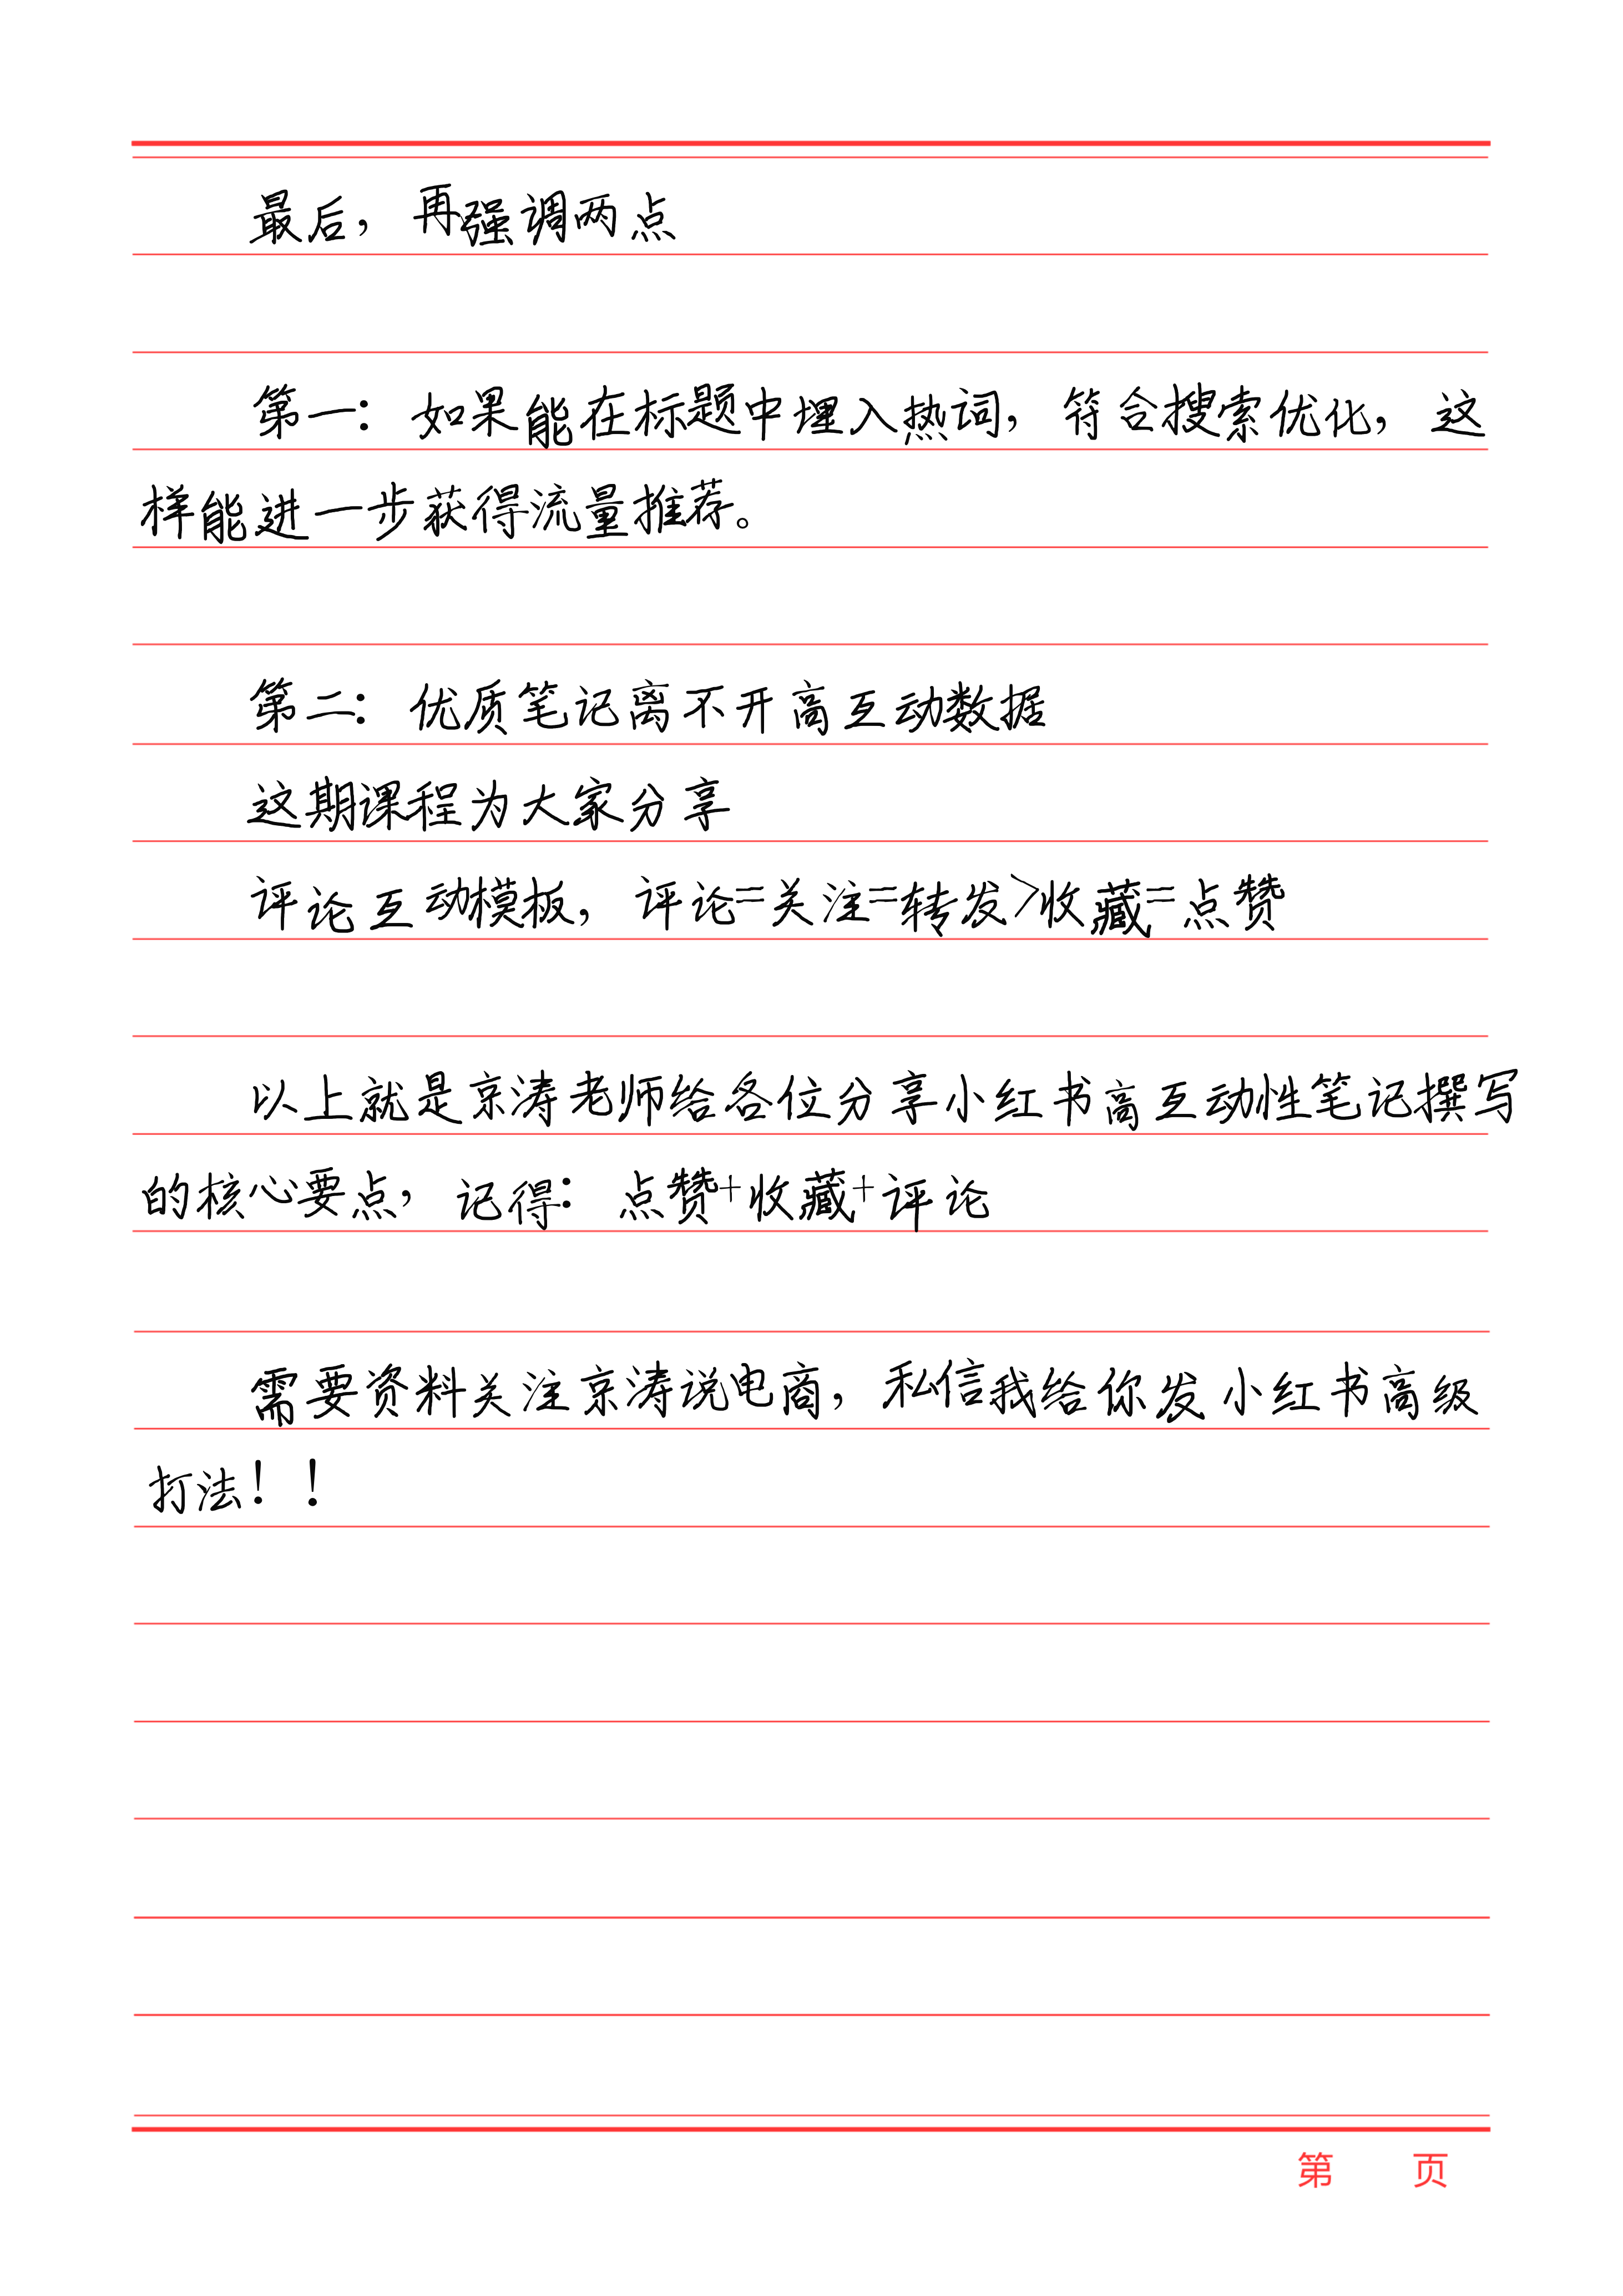 最后，再强调两点
第一：如果能在标题中埋入热词，符合搜索优化，这
样能进一步获得流量推荐。
第二：优质笔记离不开高互动数据
这期课程为大家分享
评论互动模板，评论=关注=转发>收藏=点赞
以上就是京涛老师给各位分享小红书高互动性笔记撰写
的核心要点，记得：点赞+收藏+评论
需要资料关注京涛说电商，私信我给你发小红书高级
打法！！
第 页